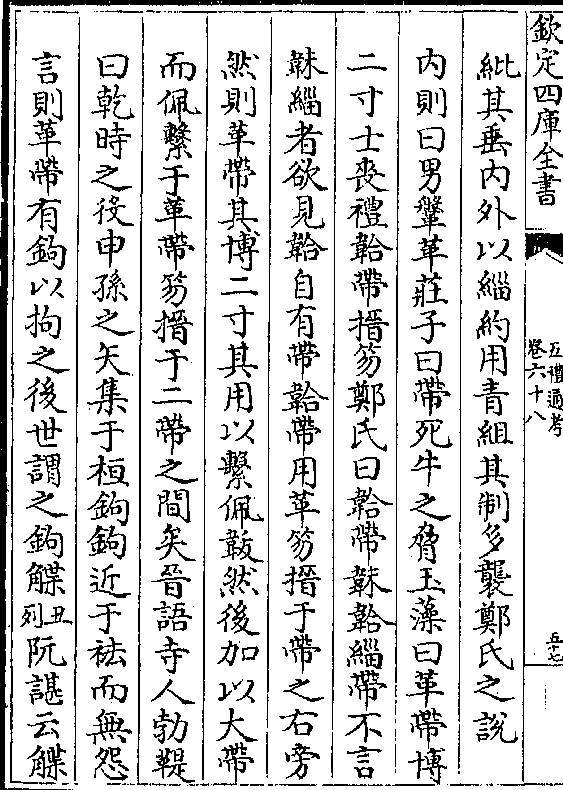 欽定四庫全書
五禮通考
卷六十八
五十七
紕其垂内外以緇約用青組其制多襲鄭氏之説
内則曰男鞶革莊子曰帶死牛之脅玉藻曰革帶博
二寸士喪禮韐帶搢笏鄭氏曰韐帶韎韐緇帶不言
韎緇者欲見韐自有帶韐帶用革笏搢于帶之右旁
然則革帶其博二寸其用以繫佩韍然後加以大帶
而佩繫于革帶笏搢于二帶之間矣晉語寺人勃鞮
曰乾時之役申孫之矢集于桓鉤鉤近于袪而無怨
言則革帶有鉤以拘之後世謂之鉤䚢丑列阮諶云䚢